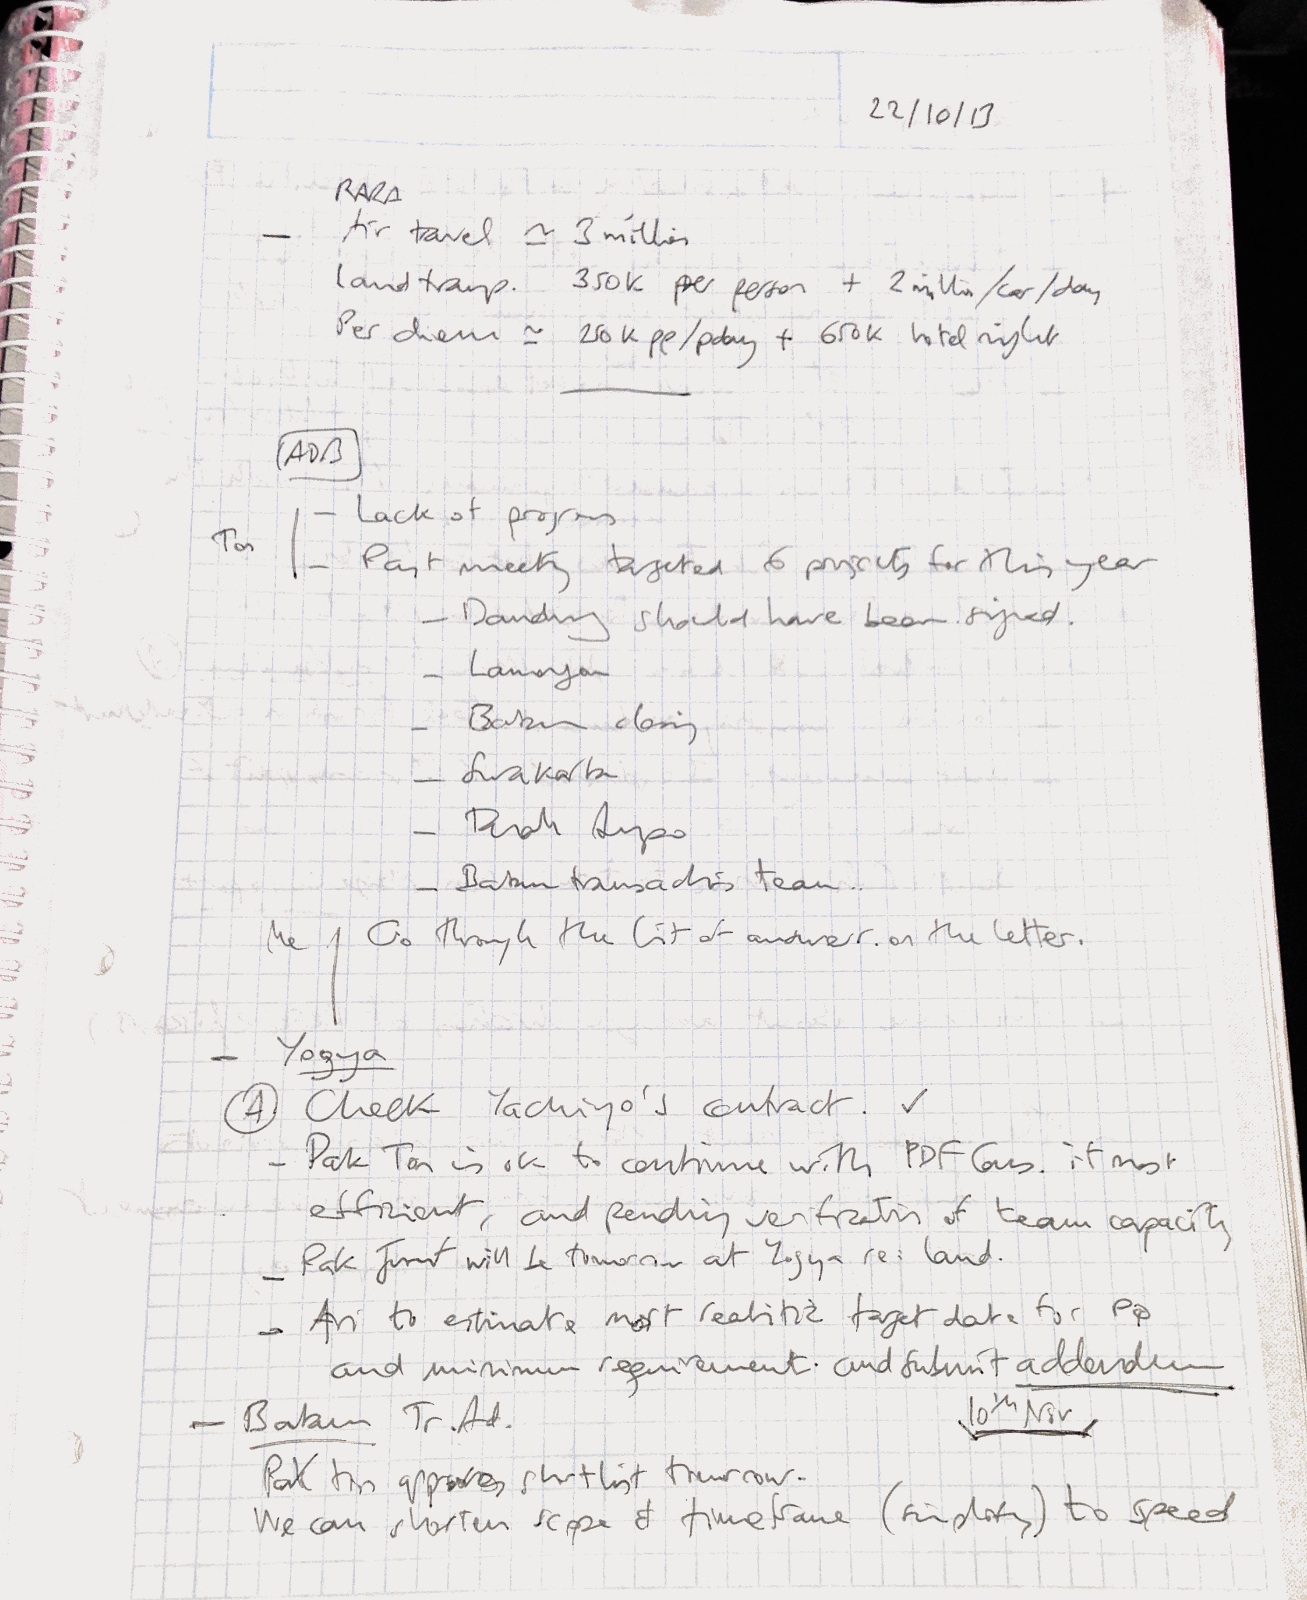 22/10/13
RARA
— Air travel ≃ 3 million
Land transp. 350K per person + 2 million/car/day
Per diem ≃ 250K pp/pday + 650K hotel night
ADB
- Lack of progress
Ton
- Past meeting targeted 6 projects for this year
- should have been signed.
- Lamongan
- Batam closing
- Surakarta
-
- Batam transactions team..
Me Go through the list of answers. on the letter.
- Yogya
(A) Check Yachiyo's contract. ✓
- Pak Ton is ok to continue with PDF Cons. if most
efficient, and pending verification of team capacity
- Pak will be tomorrow at Yogya re: land.
- Ari to estimate most realistic target date for PQ
and minimum requirement. and submit addendum
10th Nov
- Batam Tr. Ad.
Pak Ton approves shortlist tomorrow.
We can shorten scope & timeframe (simplify) to speed